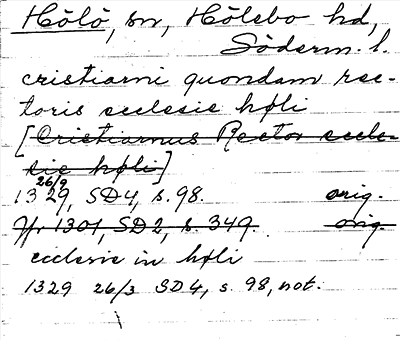 Hölö, sn, Hölebo hd,
Söderm. l.
cristiarni quondam rec-
toris ecclesie høli
[Cristiarnus Rector eccle-
sie høli]
26/9
1329, SD4, s. 98. orig.
Jfr 1301, SD2, s. 349. orig.
ecclesie in høli
1329 26/3 SD4, s. 98, not.